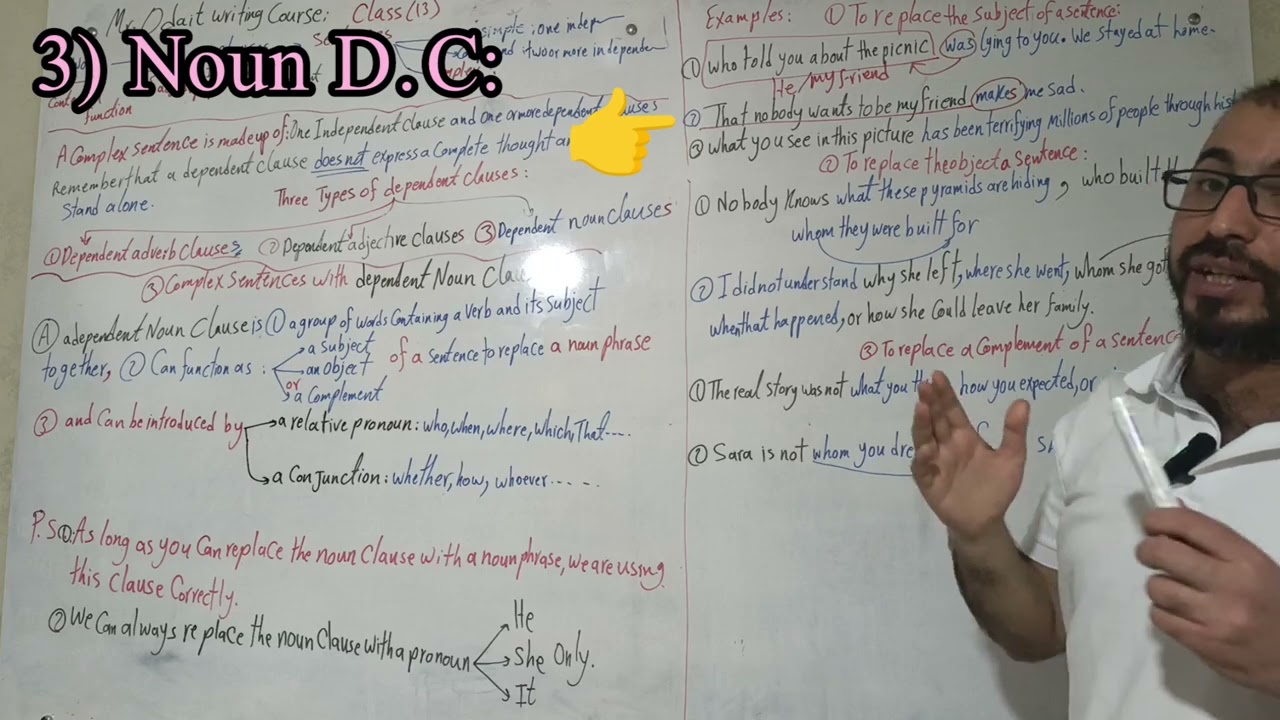 Mr. Odait writing Course: Class (13)
simple: one indep
3) Noun D.C:
two or more independen
function
A Complex sentence is made up of: One Independent Clause and one or more dependent clauses
Remember that a dependent clause does not express a Complete thought an
Stand alone.
Three Types of dependent clauses:
① Dependent adverb Clauses ② Dependent adjective Clauses ③ Dependent noun clauses
③ Complex Sentences with dependent Noun Clau
Ⓐ a dependent Noun Clause is ① a group of words Containing a Verb and its Subject
together, ② Can function as: a Subject
an object
or
a Complement
of a sentence to replace a noun phrase
③ and Can be introduced by a relative pronoun: who, when, where, which, That....
a Conjunction: whether, how, whoever.....
P.S ①: As long as you Can replace the noun Clause with a noun phrase, we are using
this Clause Correctly.
② We Can always replace the noun Clause with a pronoun He
She Only.
It
Examples: ① To replace the Subject of a sentence:
① who told you about the picnic was lying to you. We stayed at home.
He/my friend
② That nobody wants to be my friend makes me sad.
③ what you see in this picture has been terrifying Millions of people through hist
② To replace the object a Sentence:
① Nobody Knows what these pyramids are hiding, who built th
whom they were built for
② I did not understand why she left, where she went, whom she got
when that happened, or how she Could leave her family.
③ To replace a Complement of a sentenc
① The real story was not what you th how you expected, or
② Sara is not whom you dre